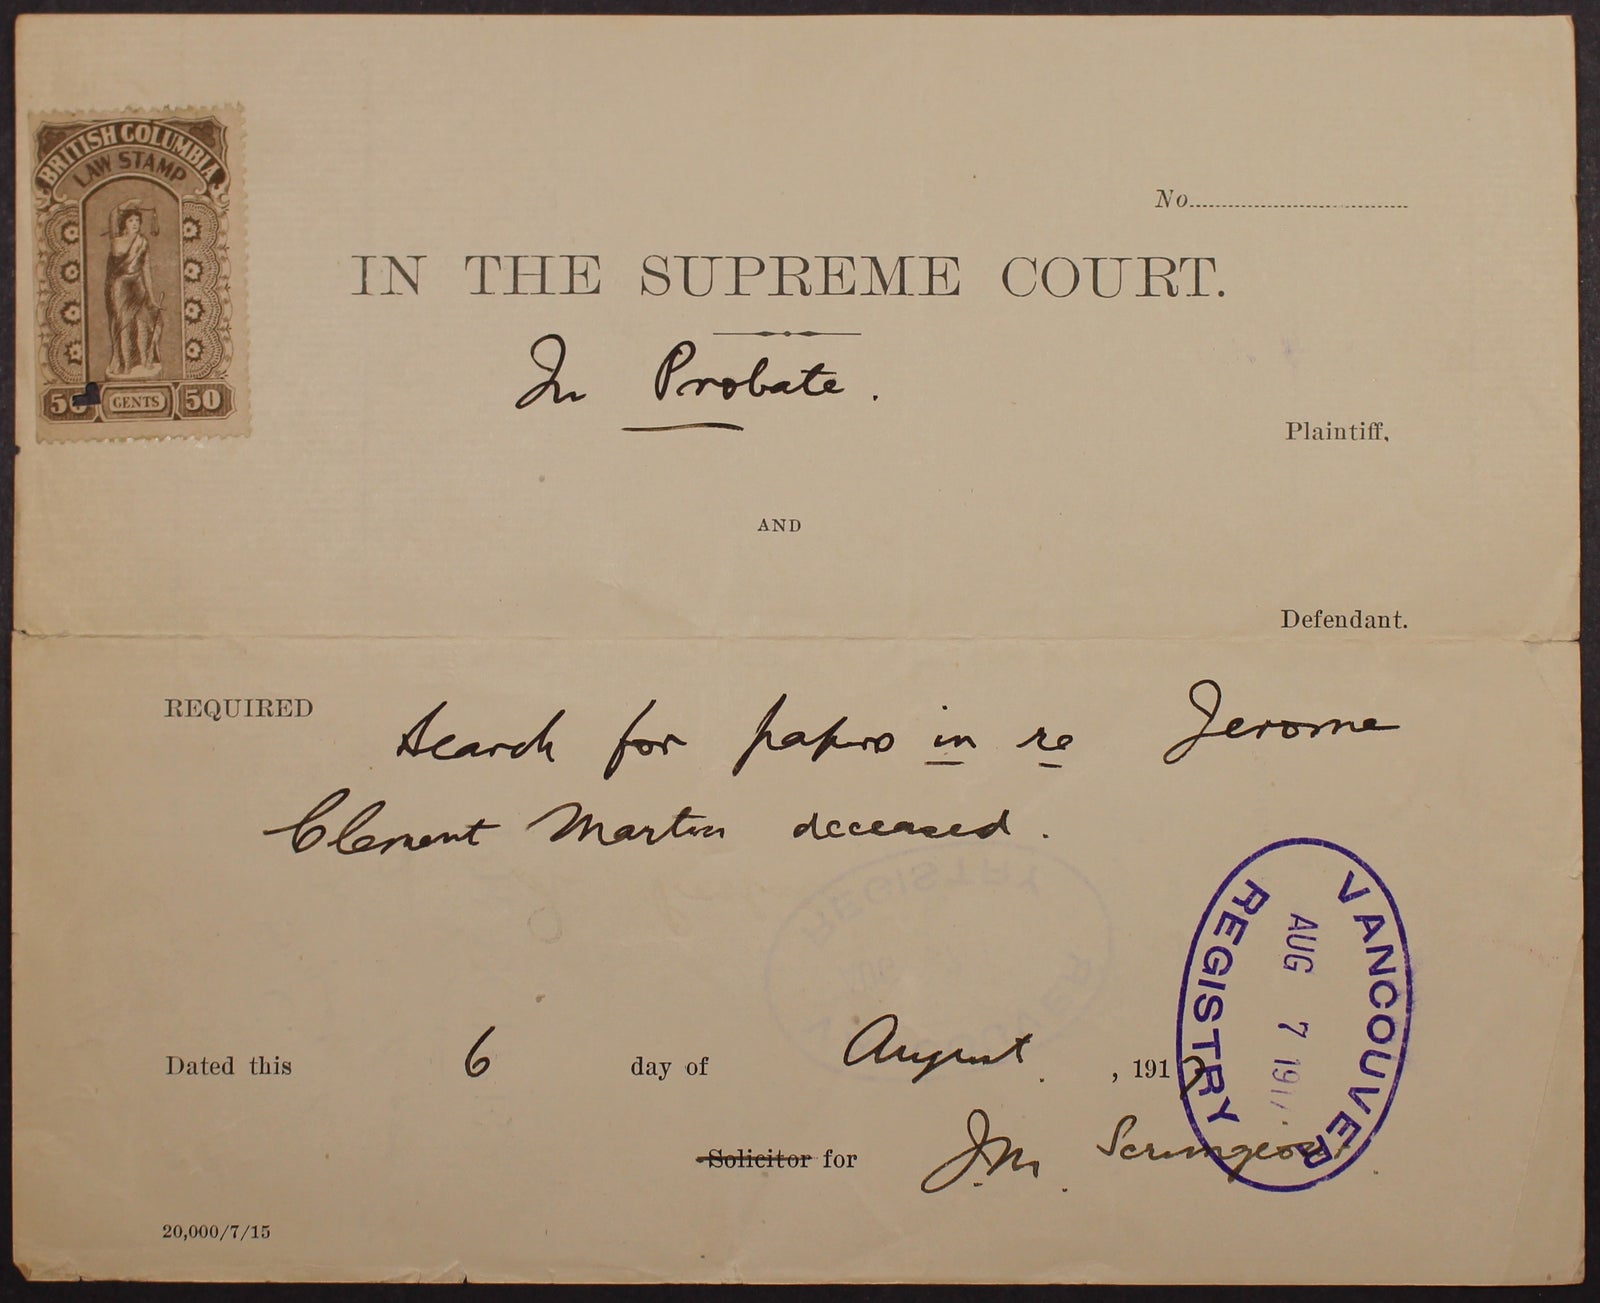 BRITISH COLUMBIA
LAW STAMP
50 CENTS 50
No.
IN THE SUPREME COURT.
In Probate.
Plaintiff,
AND
Defendant.
REQUIRED Search for papers in re Jerome
Clement Martin deceased.
VANCOUVER
AUG 7 191
REGISTRY
Dated this 6 day of August, 191
Solicitor for J.M. Scrimgeour
20,000/7/15